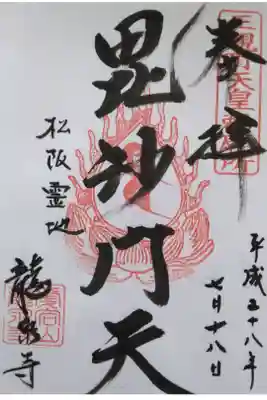 奉拝
平成二十八年
七月十八日
毘沙門天
松阪霊地
龍泉寺